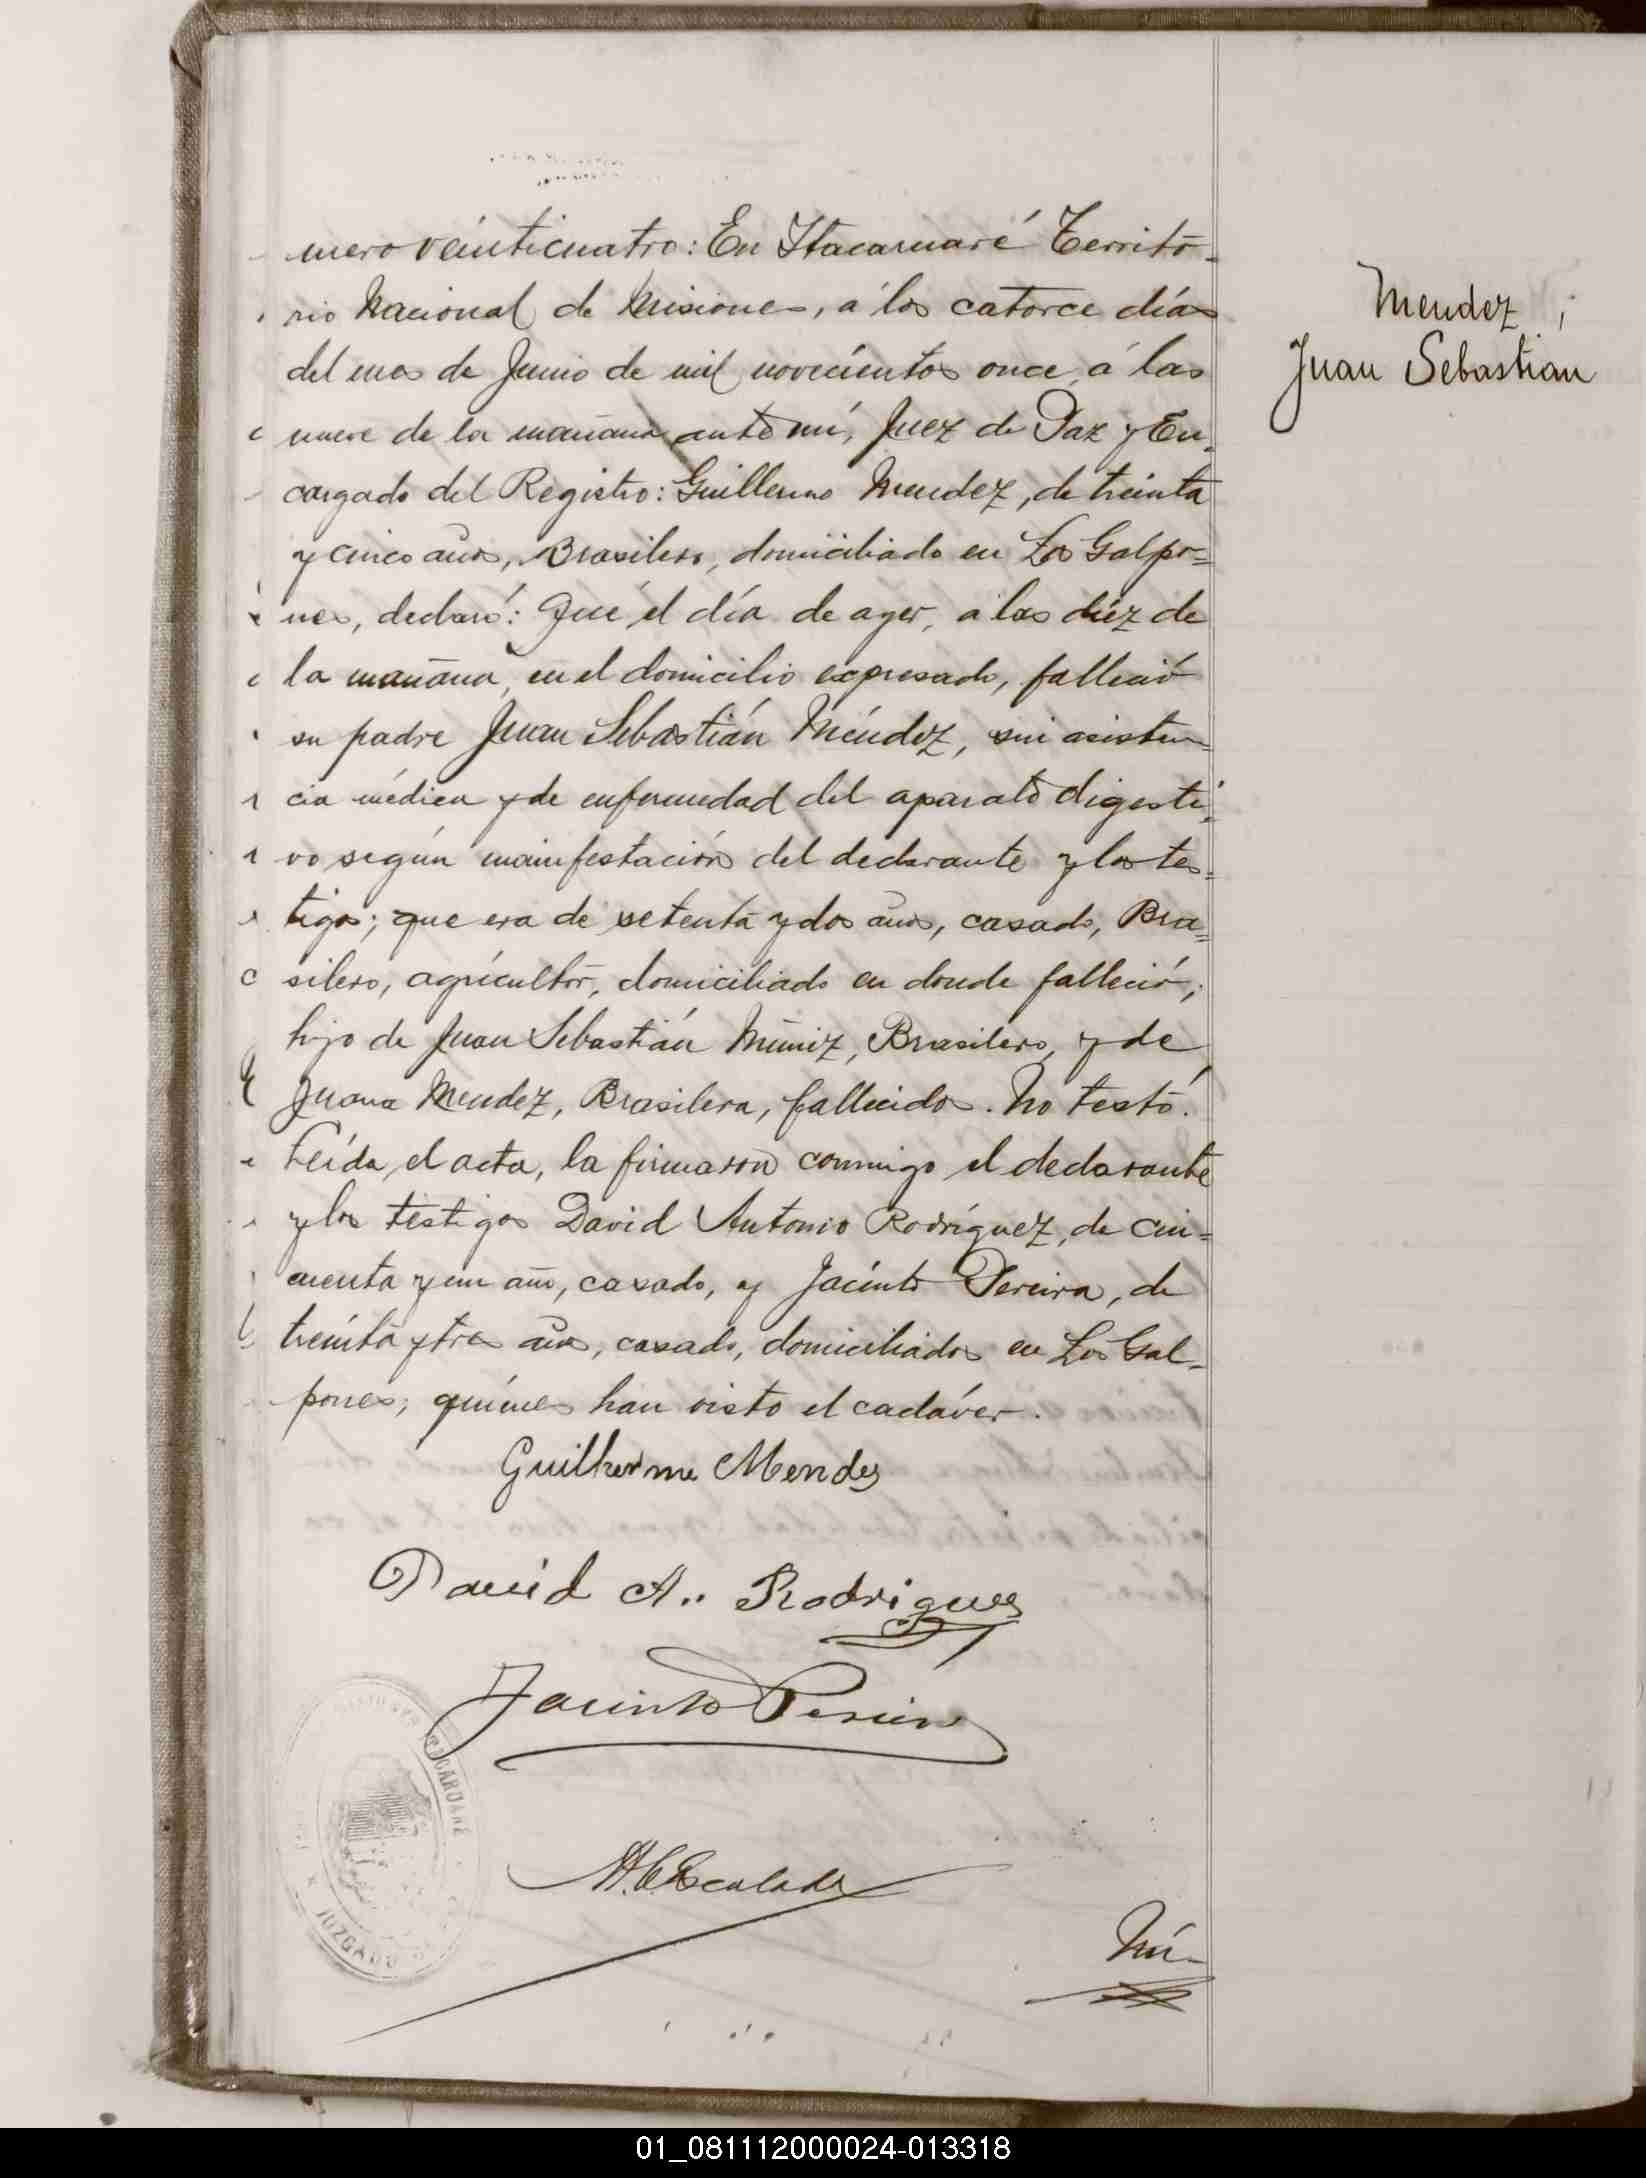 mero veinticuatro: En Itacaruaré Territo-
rio Nacional de Misiones, á los catorce días
del mes de Junio de mil novecientos once, á las
nueve de la mañana ante mí, Juez de Paz y En-
cargado del Registro: Guillermo Mendez, de treinta
y cinco años, Brasilero, domiciliado en Los Galpo=
nes, declaró: Que el día de ayer, á las diez de
la mañana, en el domicilio expresado, falleció
su padre Juan Sebastián Méndez, sin asisten=
cia médica y de enfermedad del aparato digesti-
vo según manifestación del declarante y los tes=
tigos; que era de setenta y dos años, casado, Bra=
silero, agricultor, domiciliado en donde falleció;
hijo de Juan Sebastián Muniz, Brasilero, y de
Juana Mendez, Brasilera, fallecidos. No testó.
Leída el acta, la firmaron conmigo el declarante
y los testigos David Antonio Rodríguez, de cin=
cuenta y un año, casado, y Jacinto Pereira, de
treinta y tres años, casado, domiciliados en Los Gal-
pones; quienes han visto el cadáver.
Guilherme Mendes
David A. Rodrigues
Jacinto Pereira
Escalada
JUZGADO
Nú-
Mendez,
Juan Sebastian
01_081112000024-013318